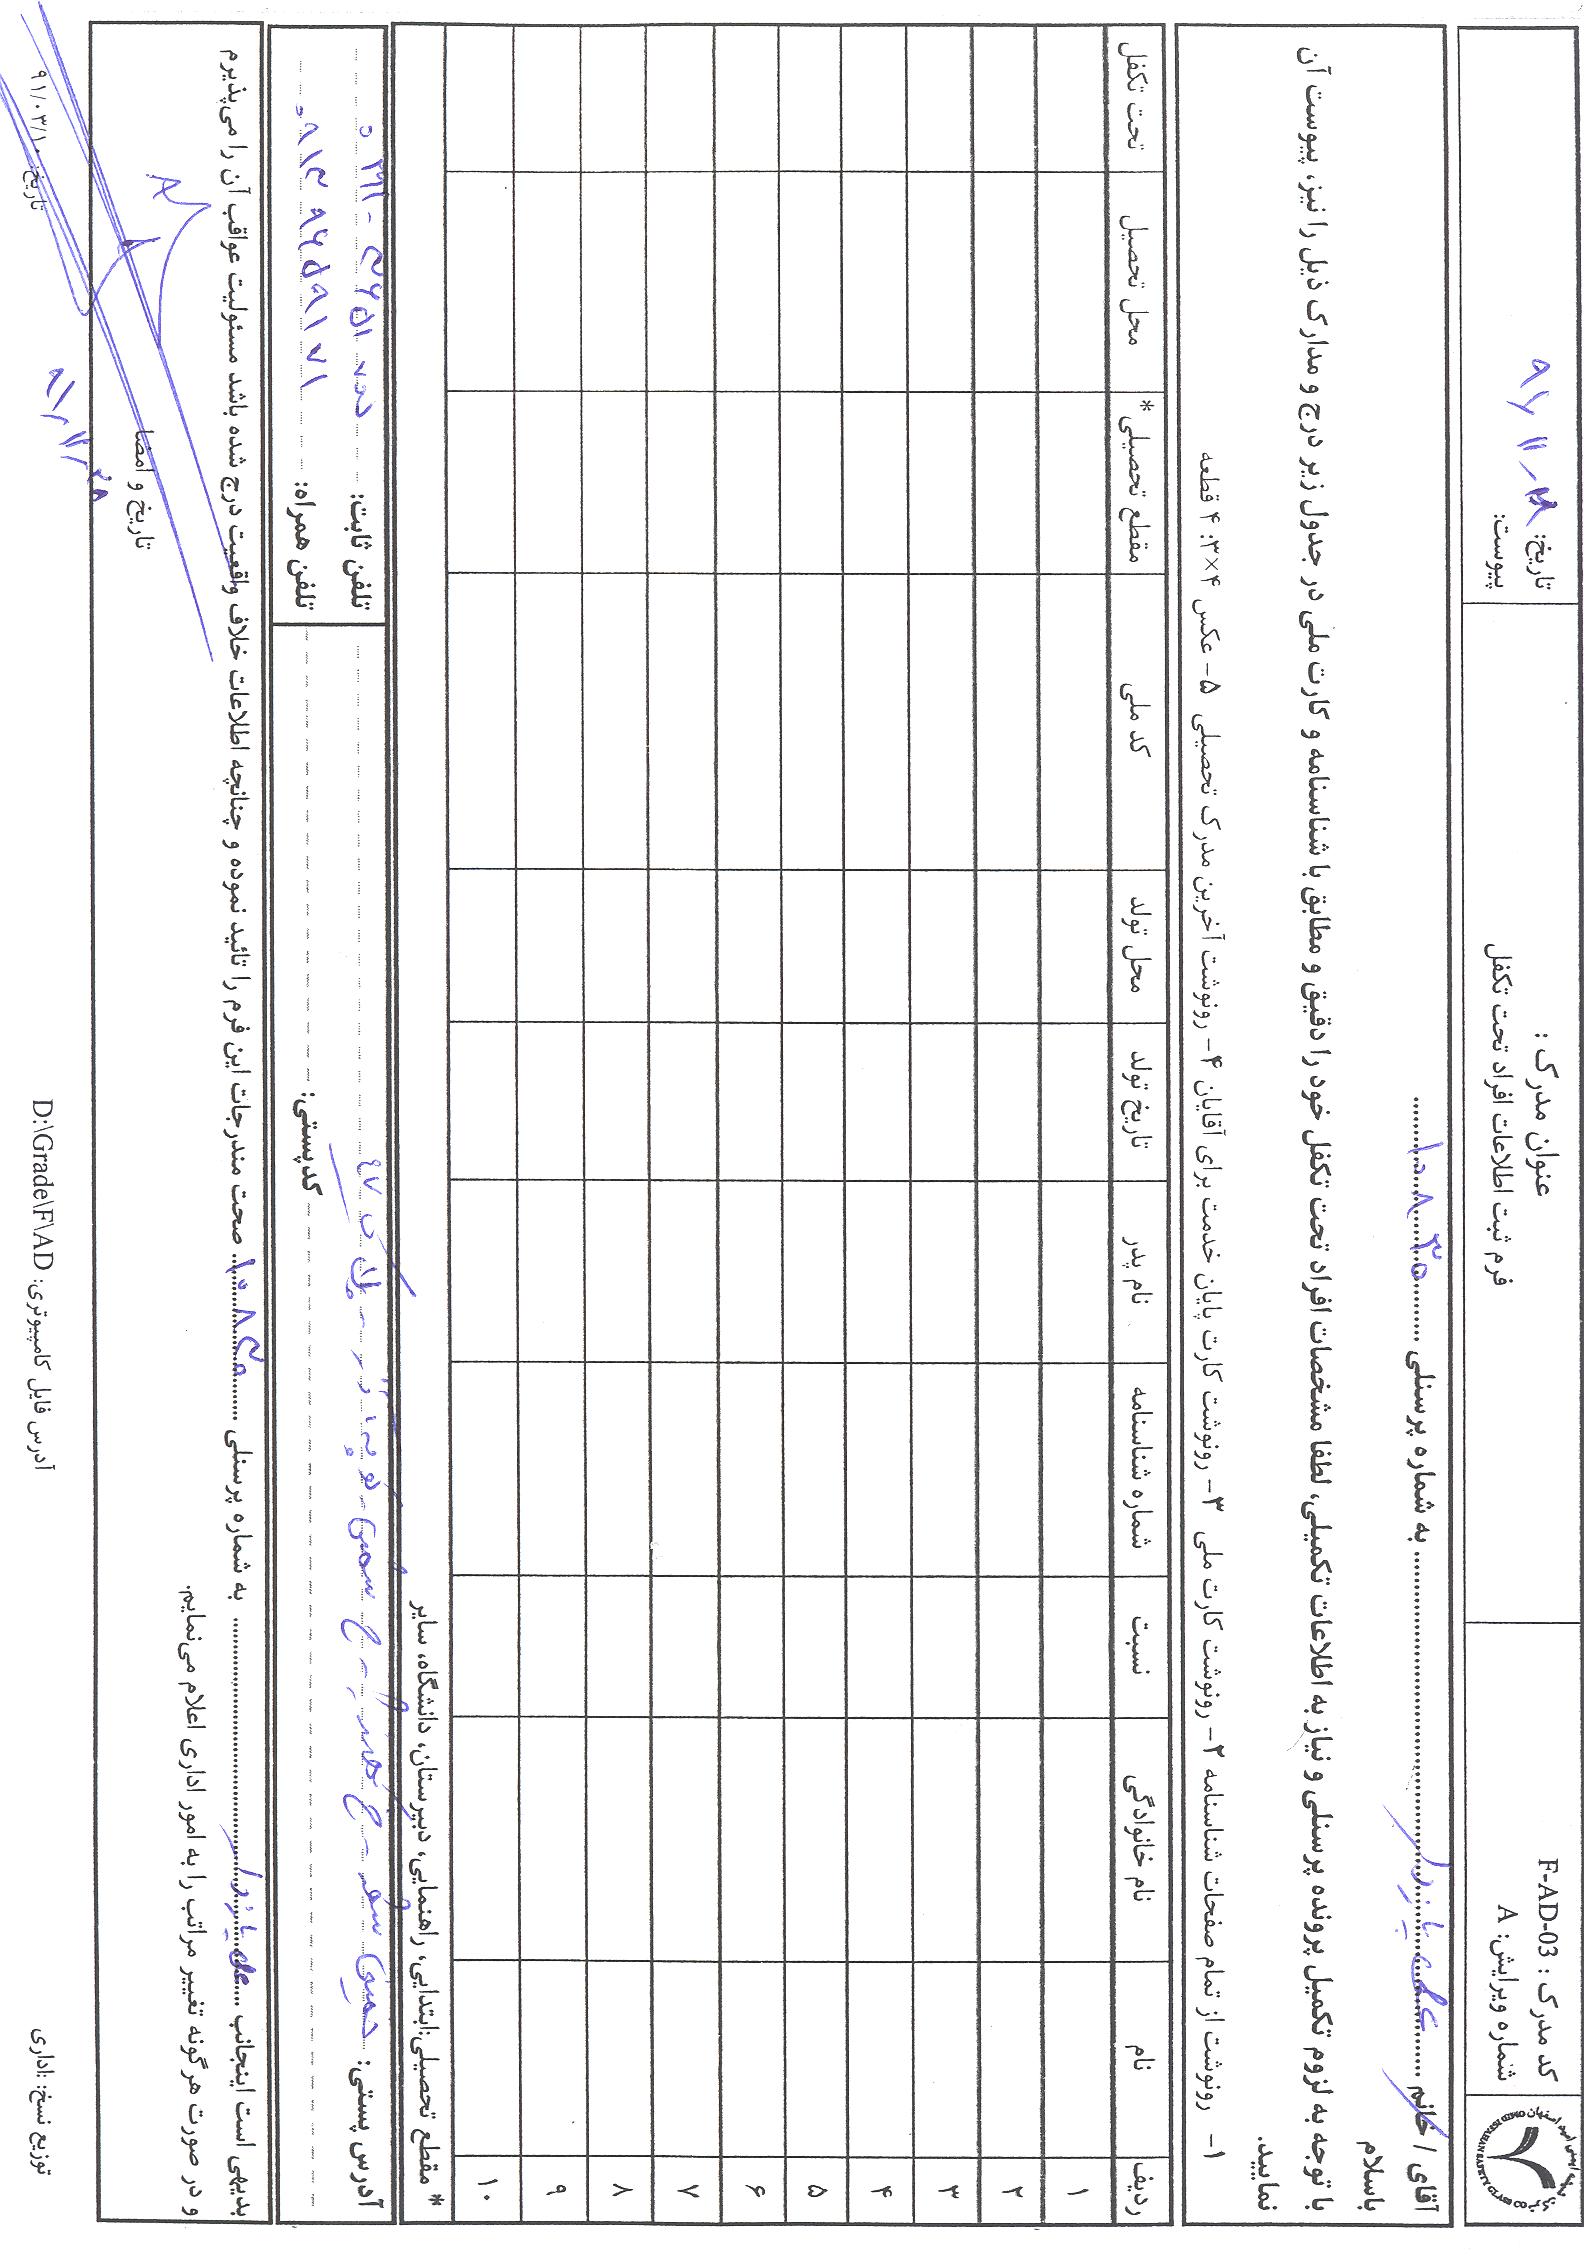 کد مدرک : F-AD-03
شماره ویرایش: A
عنوان مدرک :
فرم ثبت اطلاعات افراد تحت تکفل
تاریخ:
پیوست:
آقای / خانم علی به شماره پرسنلی ۱۰۸۳۵
باسلام
با توجه به لزوم تکمیل پرونده پرسنلی و نیاز به اطلاعات تکمیلی، لطفا مشخصات افراد تحت تکفل خود را دقیق و مطابق با شناسنامه و کارت ملی در جدول زیر درج و مدارک ذیل را نیز، پیوست آن
نمایید.
۱- رونوشت از تمام صفحات شناسنامه ۲- رونوشت کارت ملی ۳- رونوشت کارت پایان خدمت برای آقایان ۴- رونوشت آخرین مدرک تحصیلی ۵- عکس ۴×۳: ۴ قطعه
ردیف نام نام خانوادگی نسبت شماره شناسنامه نام پدر تاریخ تولد محل تولد کد ملی مقطع تحصیلی* محل تحصیل تحت تکفل
۱
۲
۳
۴
۵
۶
۷
۸
۹
۱۰
* مقطع تحصیلی:ابتدایی، راهنمایی، دبیرستان، دانشگاه، سایر
آدرس پستی: پلاک ۴۷
کدپستی:
تلفن ثابت:
تلفن همراه: ۰۹۱۳۹۶۵۹۱۷۱
بدیهی است اینجانب علی به شماره پرسنلی صحت مندرجات این فرم را تائید نموده و چنانچه اطلاعات خلاف واقعیت درج شده باشد مسئولیت عواقب آن را می‌پذیرم
و در صورت هرگونه تغییر مراتب را به امور اداری اعلام می‌نمایم.
تاریخ و امضا
توزیع نسخ: اداری
آدرس فایل کامپیوتری: D:\Grade\F\AD
تاریخ: ۹۱/۰۳/۱۰